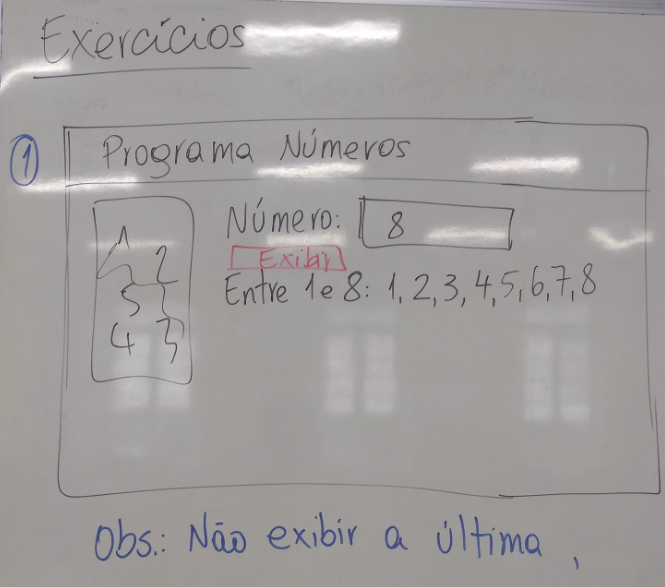 Exercícios
1
Programa Números
Número: 8
Exibir
Entre 1 e 8: 1, 2, 3, 4, 5, 6, 7, 8
1
2
5
4 3
Obs.: Não exibir a última ,